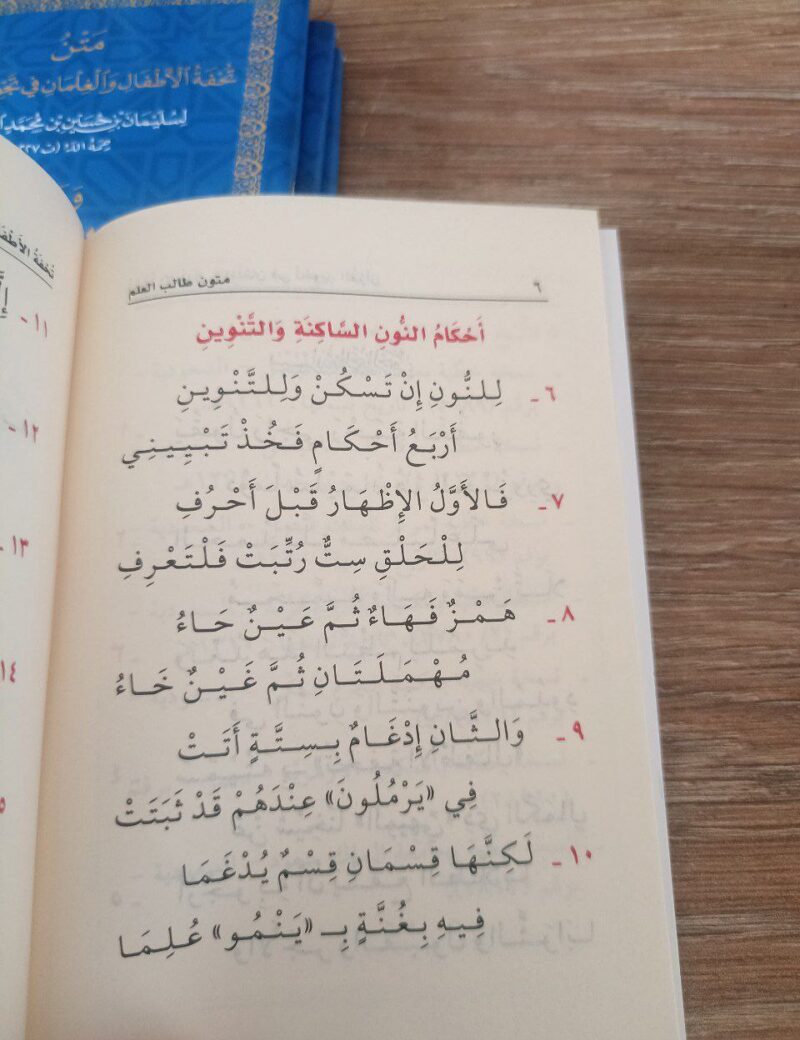 مَتْنُ
تُحْفَةُ الْأَطْفَالِ وَالْغِلْمَانِ فِي
لِسُلَيْمَانَ بْنِ حُسَيْنِ بْنِ مُحَمَّدٍ
تُحْفَةُ
١١ -
١٢ -
١٣ -
١٤
متون طالب العلم
٦
أَحْكَامُ النُّونِ السَّاكِنَةِ وَالتَّنْوِينِ
٦- لِلنُّونِ إِنْ تَسْكُنْ وَلِلتَّنْوِينِ
أَرْبَعُ أَحْكَامٍ فَخُذْ تَبْيِينِي
٧- فَالأَوَّلُ الإِظْهَارُ قَبْلَ أَحْرُفِ
لِلْحَلْقِ سِتٌّ رُتِّبَتْ فَلْتَعْرِفِ
٨- هَمْزٌ فَهَاءٌ ثُمَّ عَيْنٌ حَاءُ
مُهْمَلَتَانِ ثُمَّ غَيْنٌ خَاءُ
٩- وَالثَّانِ إِدْغَامٌ بِسِتَّةٍ أَتَتْ
فِي «يَرْمُلُونَ» عِنْدَهُمْ قَدْ ثَبَتَتْ
١٠- لَكِنَّهَا قِسْمَانِ قِسْمٌ يُدْغَمَا
فِيهِ بِغُنَّةٍ بِـ «يَنْمُو» عُلِمَا